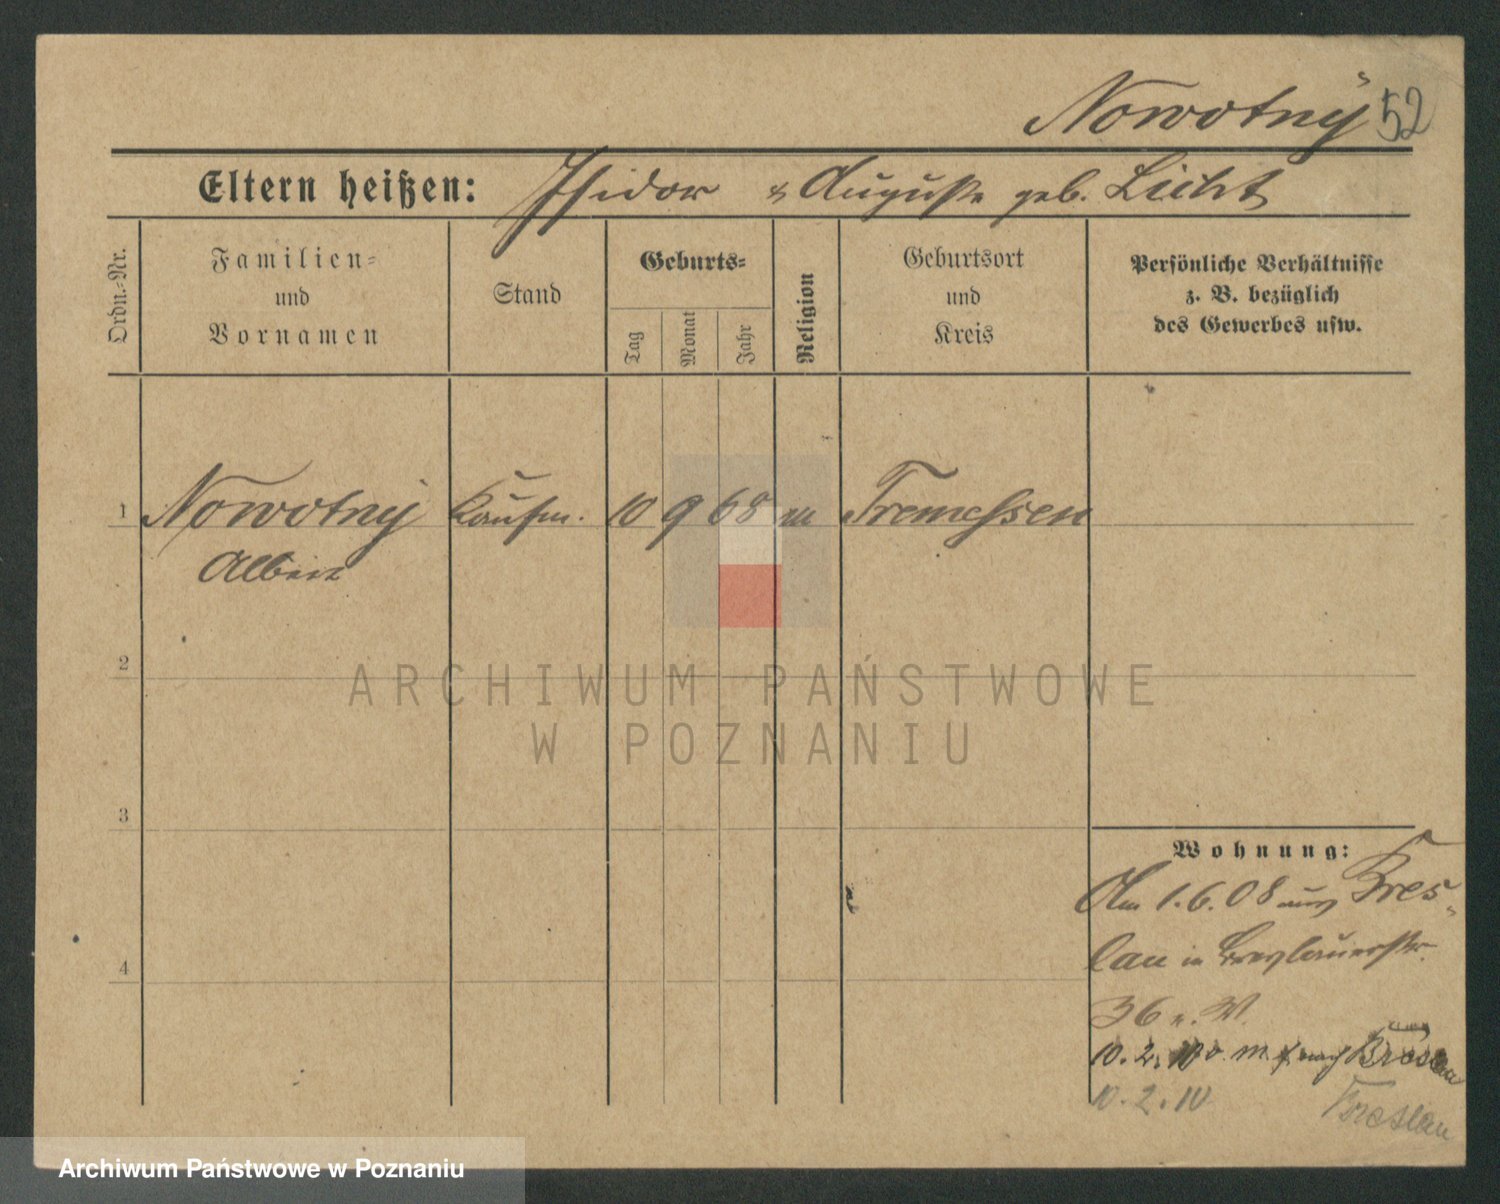 Nowotny 52
Eltern heißen: Isidor & Auguste geb. Licht
Ordn.-Nr.
Familien-
und
Vornamen
Stand
Geburts-
Tag
Monat
Jahr
Religion
Geburtsort
und
Kreis
Persönliche Verhältnisse
z. B. bezüglich
des Gewerbes usw.
1 Nowotny Kaufm. 10 9 68 m Tremessen
Albert
2
ARCHIWUM PAŃSTWOWE
W POZNANIU
3
Wohnung:
Am 1.6.08 aus Bres-
4
lau in Breslauerstr.
36
10.2.10 nach Breslau
10.2.10 Breslau
Archiwum Państwowe w Poznaniu